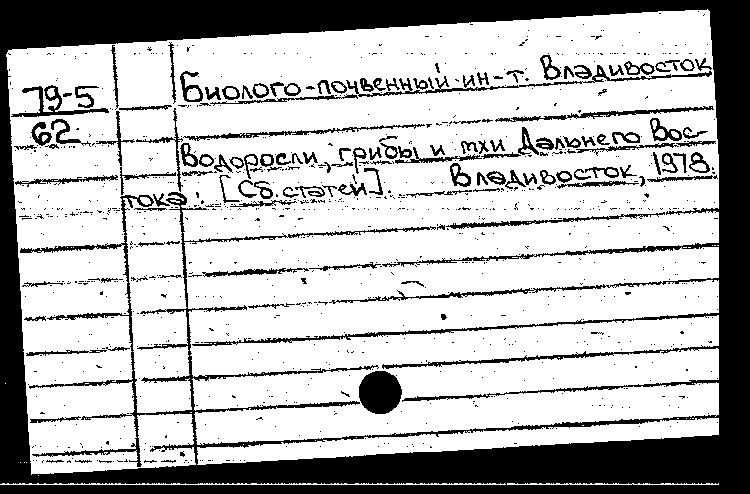 79-5
62
Биолого-почвенный ин-т. Владивосток
Водоросли, грибы и мхи Дальнего Вос-
тока: [Сб. статей]. Владивосток, 1978.